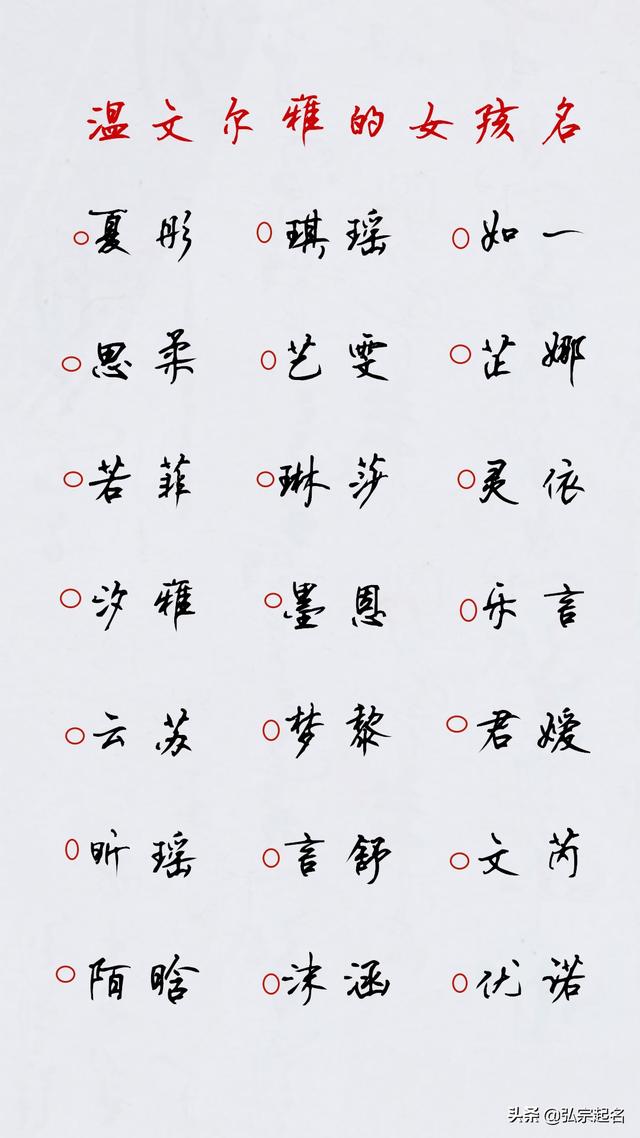 温文尔雅的女孩名
夏彤 琪瑶 如一
思柔 艺雯 芷娜
若菲 琳莎 灵依
汐雅 墨恩 乐言
云苏 梦黎 君嫒
昕瑶 言舒 文芮
陌晗 沫涵 优诺
头条 @弘宗起名